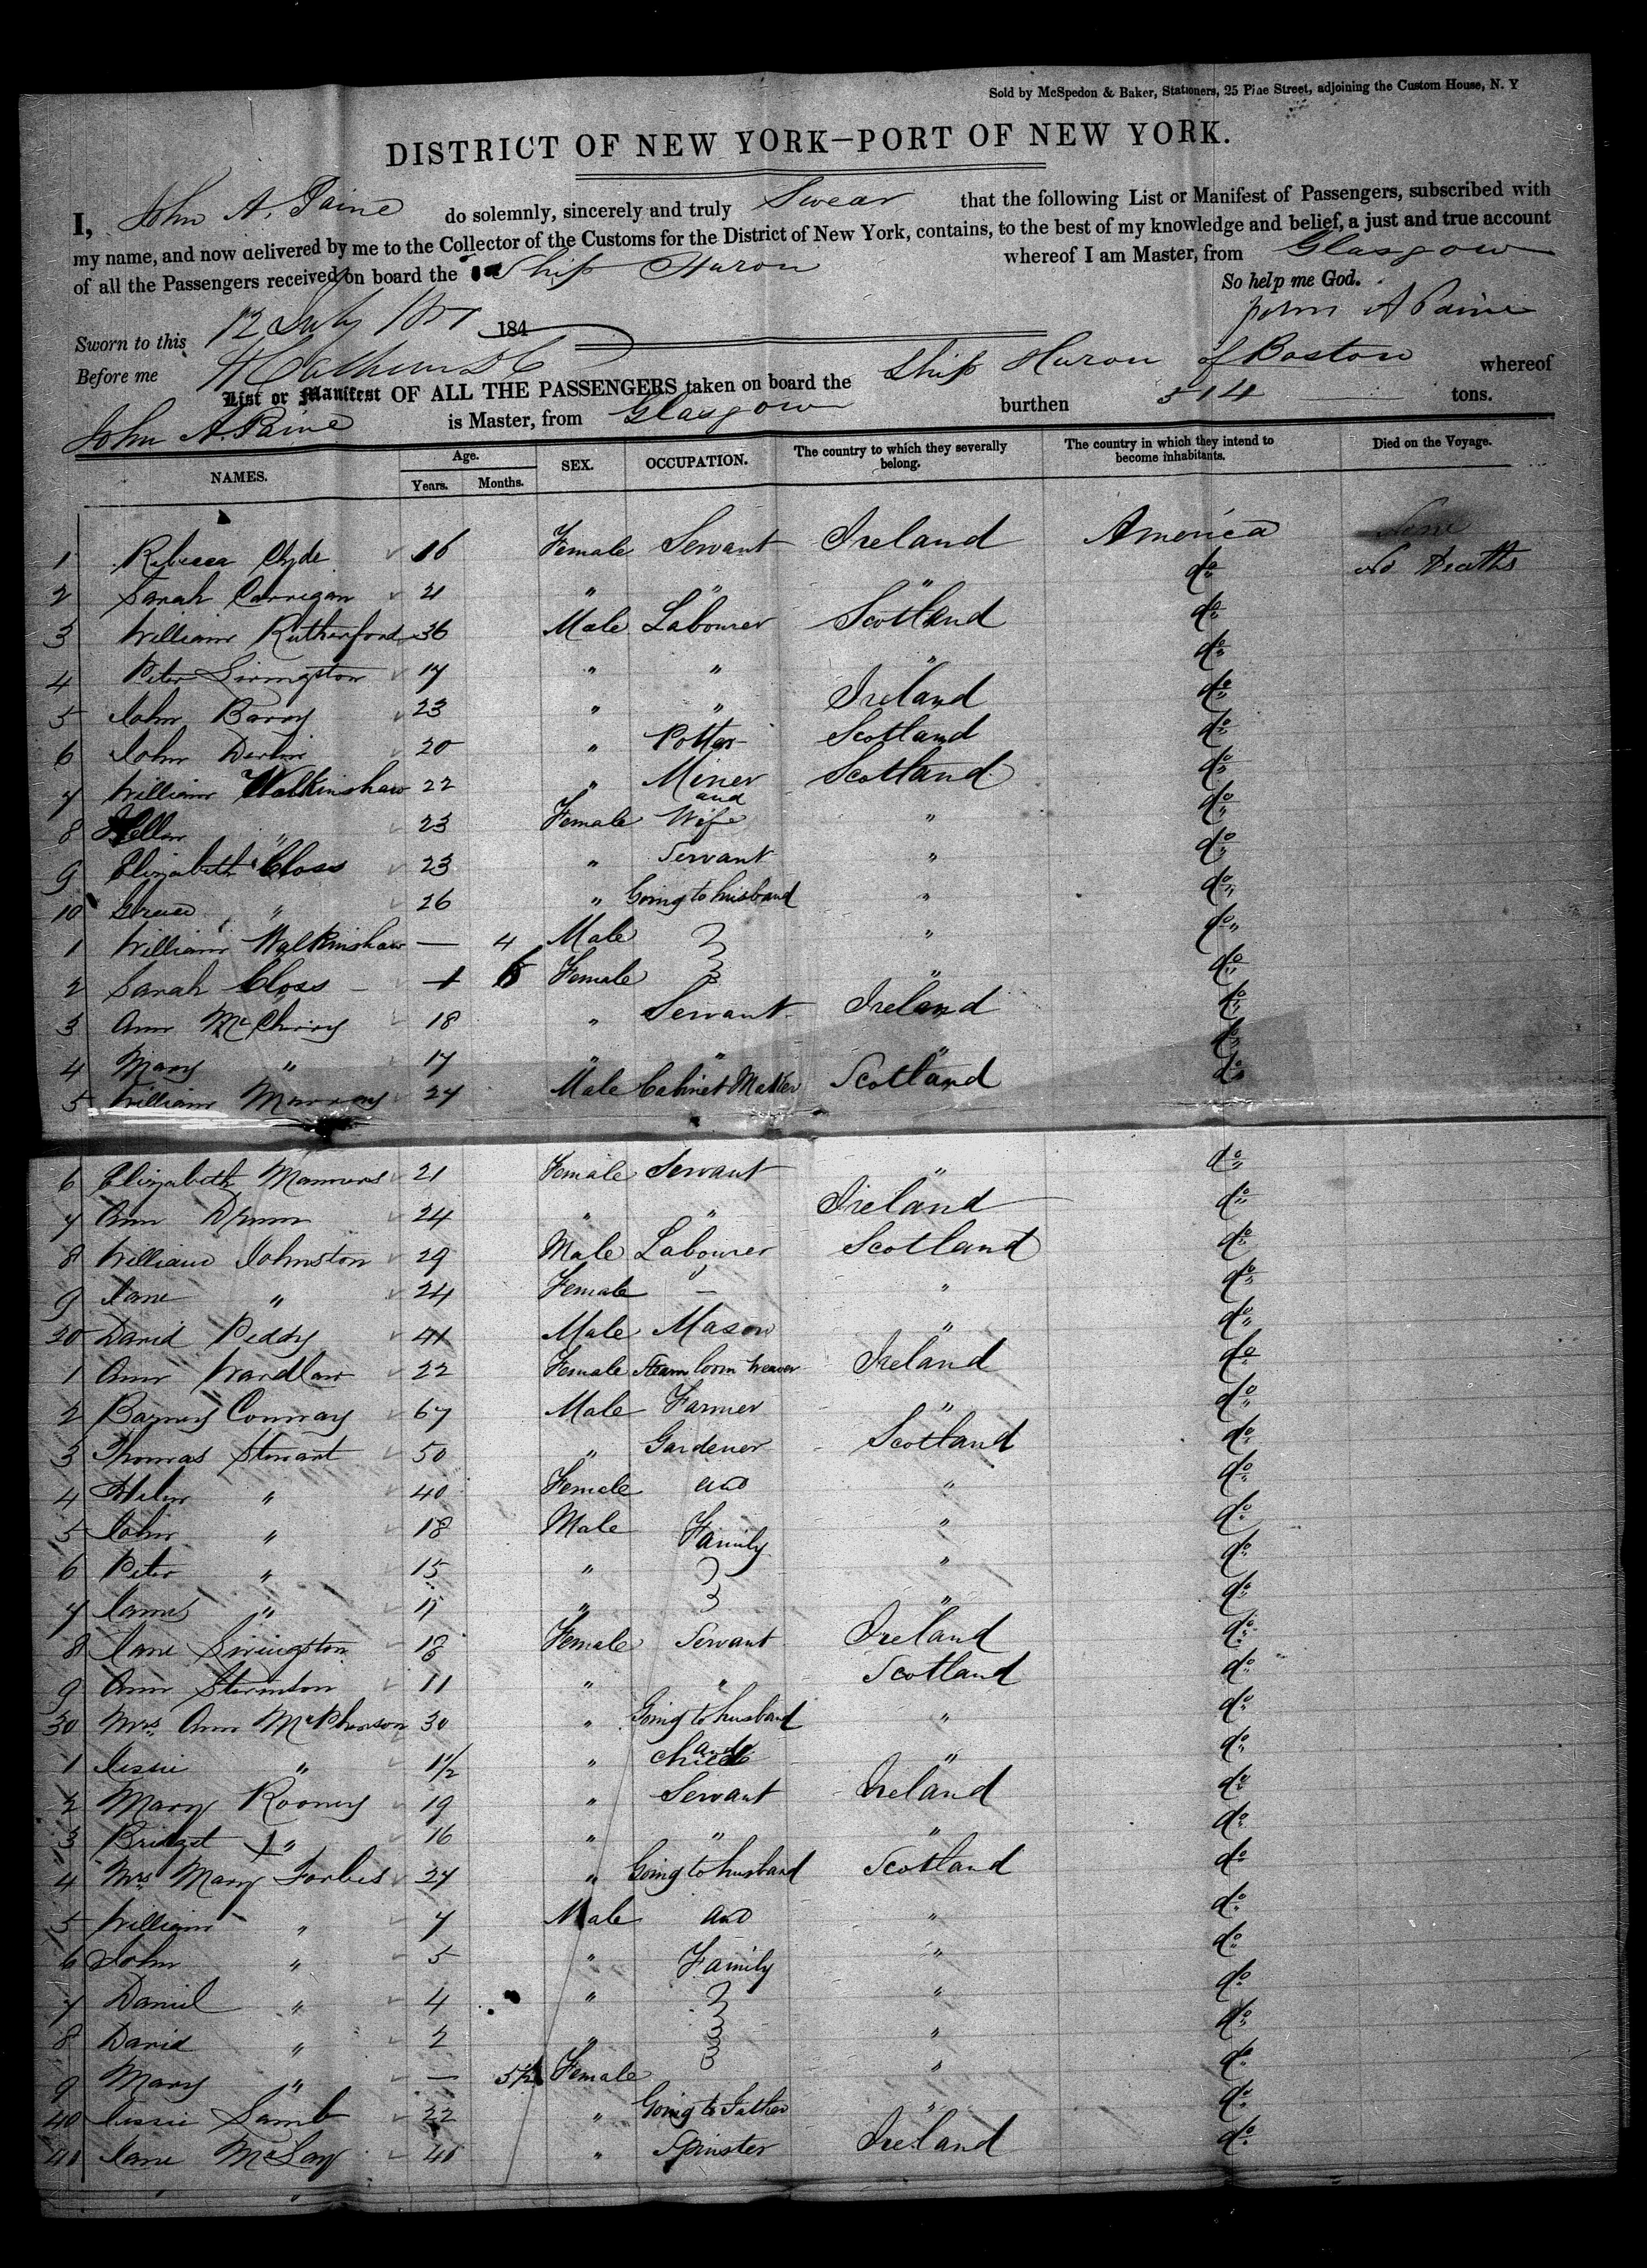 Sold by McSpedon & Baker, Stationers, 25 Pine Street, adjoining the Custom House, N. Y
DISTRICT OF NEW YORK—PORT OF NEW YORK.
I, John A. Paine do solemnly, sincerely and truly Swear that the following List or Manifest of Passengers, subscribed with
my name, and now delivered by me to the Collector of the Customs for the District of New York, contains, to the best of my knowledge and belief, a just and true account
of all the Passengers received on board the Ship Huron whereof I am Master, from Glasgow
So help me God.
Sworn to this 12 July 1851 184 John A Paine
Before me
List or Manifest OF ALL THE PASSENGERS taken on board the Ship Huron of Boston whereof
John A. Paine is Master, from Glasgow burthen 514 tons.
NAMES. Age. Years. Months. SEX. OCCUPATION. The country to which they severally belong. The country in which they intend to become inhabitants. Died on the Voyage.
1 Rebecca Clyde 16 Female Servant Ireland America None
2 Sarah Carrigan 21 " " " do No Deaths
3 William Rutherford 36 Male Labourer Scotland do
4 Peter Livingston 17 " " " do
5 John Barry 23 " " Ireland do
6 John Devlin 20 " Potter Scotland do
7 William Walkinshaw 22 " Miner Scotland do
8 Hellen " 23 Female and Wife " do
9 Elizabeth Closs 23 " Servant " do
10 Grace " 26 " Going to husband " do
1 William Walkinshaw — 4 Male " do
2 Sarah Closs — Female " do
3 Ann McChrry 18 " Servant Ireland do
4 Mary " 17 " " " do
5 William Murray 27 Male Cabinet Maker Scotland do
6 Elizabeth Manners 21 Female Servant " do
7 Ann Drum 24 " " Ireland do
8 William Johnston 29 Male Labourer Scotland do
9 Jane " 24 Female — " do
20 David Peddy 41 Male Mason " do
1 Ann Wardlaw 22 Female Steam loom weaver Ireland do
2 Barney Conway 67 Male Farmer " do
3 Thomas Stewart 50 " Gardener Scotland do
4 Helen " 40 Female and " do
5 John " 18 Male Family " do
6 Peter " 15 " " do
7 James " 11 " " do
8 Jane Livingston 18 Female Servant Ireland do
9 Ann 11 " " Scotland do
30 Mrs. Ann McPherson 30 " Going to husband " do
1 Jessie " 1 1/2 " and child " do
2 Mary Rooney 19 " Servant Ireland do
3 Bridget " 16 " " " do
4 Mrs. Mary Forbes 27 " Going to husband Scotland do
5 William " 7 Male and " do
6 John " 5 " Family " do
7 Daniel " 4 " " do
8 David " 2 " " do
9 Mary " — 5 1/2 Female " do
40 Jessie Lamb 22 " Going to Father " do
41 Jane McLay 40 " Spinster Ireland do